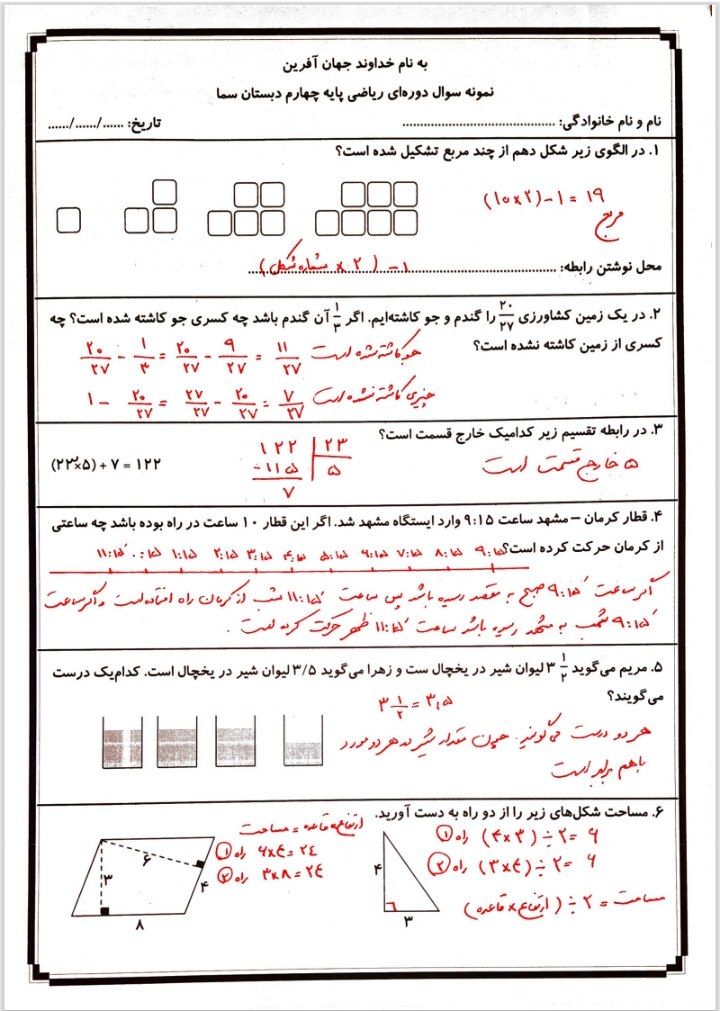 به نام خداوند جهان آفرین
نمونه سوال دوره‌ای ریاضی پایه چهارم دبستان سما
نام و نام خانوادگی: ........................................ تاریخ: ....../....../......
۱. در الگوی زیر شکل دهم از چند مربع تشکیل شده است؟
(۱۰×۲)-۱ = ۱۹
مربع
محل نوشتن رابطه: (شماره شکل × ۲) - ۱
۲. در یک زمین کشاورزی ۲۰/۲۷ را گندم و جو کاشته‌ایم. اگر ۱/۳ آن گندم باشد چه کسری جو کاشته شده است؟ چه
کسری از زمین کاشته نشده است؟
۲۰/۲۷ - ۱/۳ = ۲۰/۲۷ - ۹/۲۷ = ۱۱/۲۷ جو کاشته شده است
۱ - ۲۰/۲۷ = ۲۷/۲۷ - ۲۰/۲۷ = ۷/۲۷ چیزی کاشته نشده است
۳. در رابطه تقسیم زیر کدامیک خارج قسمت است؟
(۲۳×۵) + ۷ = ۱۲۲
۱۲۲ | ۲۳
-۱۱۵ | ۵
۷
۵ خارج قسمت است
۴. قطار کرمان – مشهد ساعت ۹:۱۵ وارد ایستگاه مشهد شد. اگر این قطار ۱۰ ساعت در راه بوده باشد چه ساعتی
از کرمان حرکت کرده است؟
۱۱:۱۵ ۰:۱۵ ۱:۱۵ ۲:۱۵ ۳:۱۵ ۴:۱۵ ۵:۱۵ ۶:۱۵ ۷:۱۵ ۸:۱۵ ۹:۱۵
اگر ساعت ۹:۱۵ صبح به مقصد رسیده باشد پس ساعت ۱۱:۱۵ شب از کرمان راه افتاده است و اگر ساعت
۹:۱۵ شب به مشهد رسیده باشد ساعت ۱۱:۱۵ ظهر حرکت کرده است.
۵. مریم می‌گوید ۳ ۱/۲ لیوان شیر در یخچال ست و زهرا می‌گوید ۳/۵ لیوان شیر در یخچال است. کدام‌یک درست
می‌گویند؟
۳ ۱/۲ = ۳,۵
هر دو درست می‌گویند. چون مقدار شیر در هر دو مورد
با هم برابر است
۶. مساحت شکل‌های زیر را از دو راه به دست آورید.
راه ۱ (۴×۳)÷۲=۶
راه ۲ (۳×۴)÷۲=۶
مساحت = ۲ ÷ (ارتفاع × قاعده)
۴
۳
ارتفاع × قاعده = مساحت
راه ۱ ۶×۴=۲۴
راه ۲ ۳×۸=۲۴
۶
۳
۴
۸